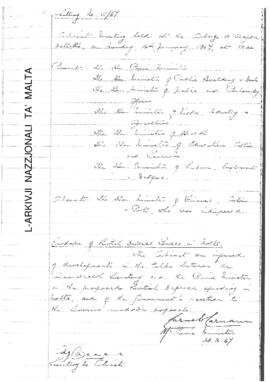 Meeting No. 5/67
Cabinet Meeting held at the Auberge d'Aragon
Valletta, on Monday, 16th January, 1967, at 10 am.
Present: The Hon. Prime Minister
The Hon. Minister of Public Building & Works
The Hon. Minister of Justice and Parliamentary
Affairs
The Hon. Minister of Trade, Industry &
Agriculture
The Hon. Minister of Health
The Hon. Minister of Education, Culture
and Tourism
The Hon. Minister of Labour, Employment
& Welfare.
Absent: The Hon. Minister of Finance, Customs
& Ports, who was indisposed.
Rundown of British Defence Forces in Malta.
The Cabinet was informed
of developments in the talks between the
Commonwealth Secretary and the Prime Minister
on the proposed British Defence spending in
Malta, and of the Government's reaction to
the Services rundown proposals.
Prime Minister
Secretary to Cabinet
L-ARKIVJI NAZZJONALI TA' MALTA